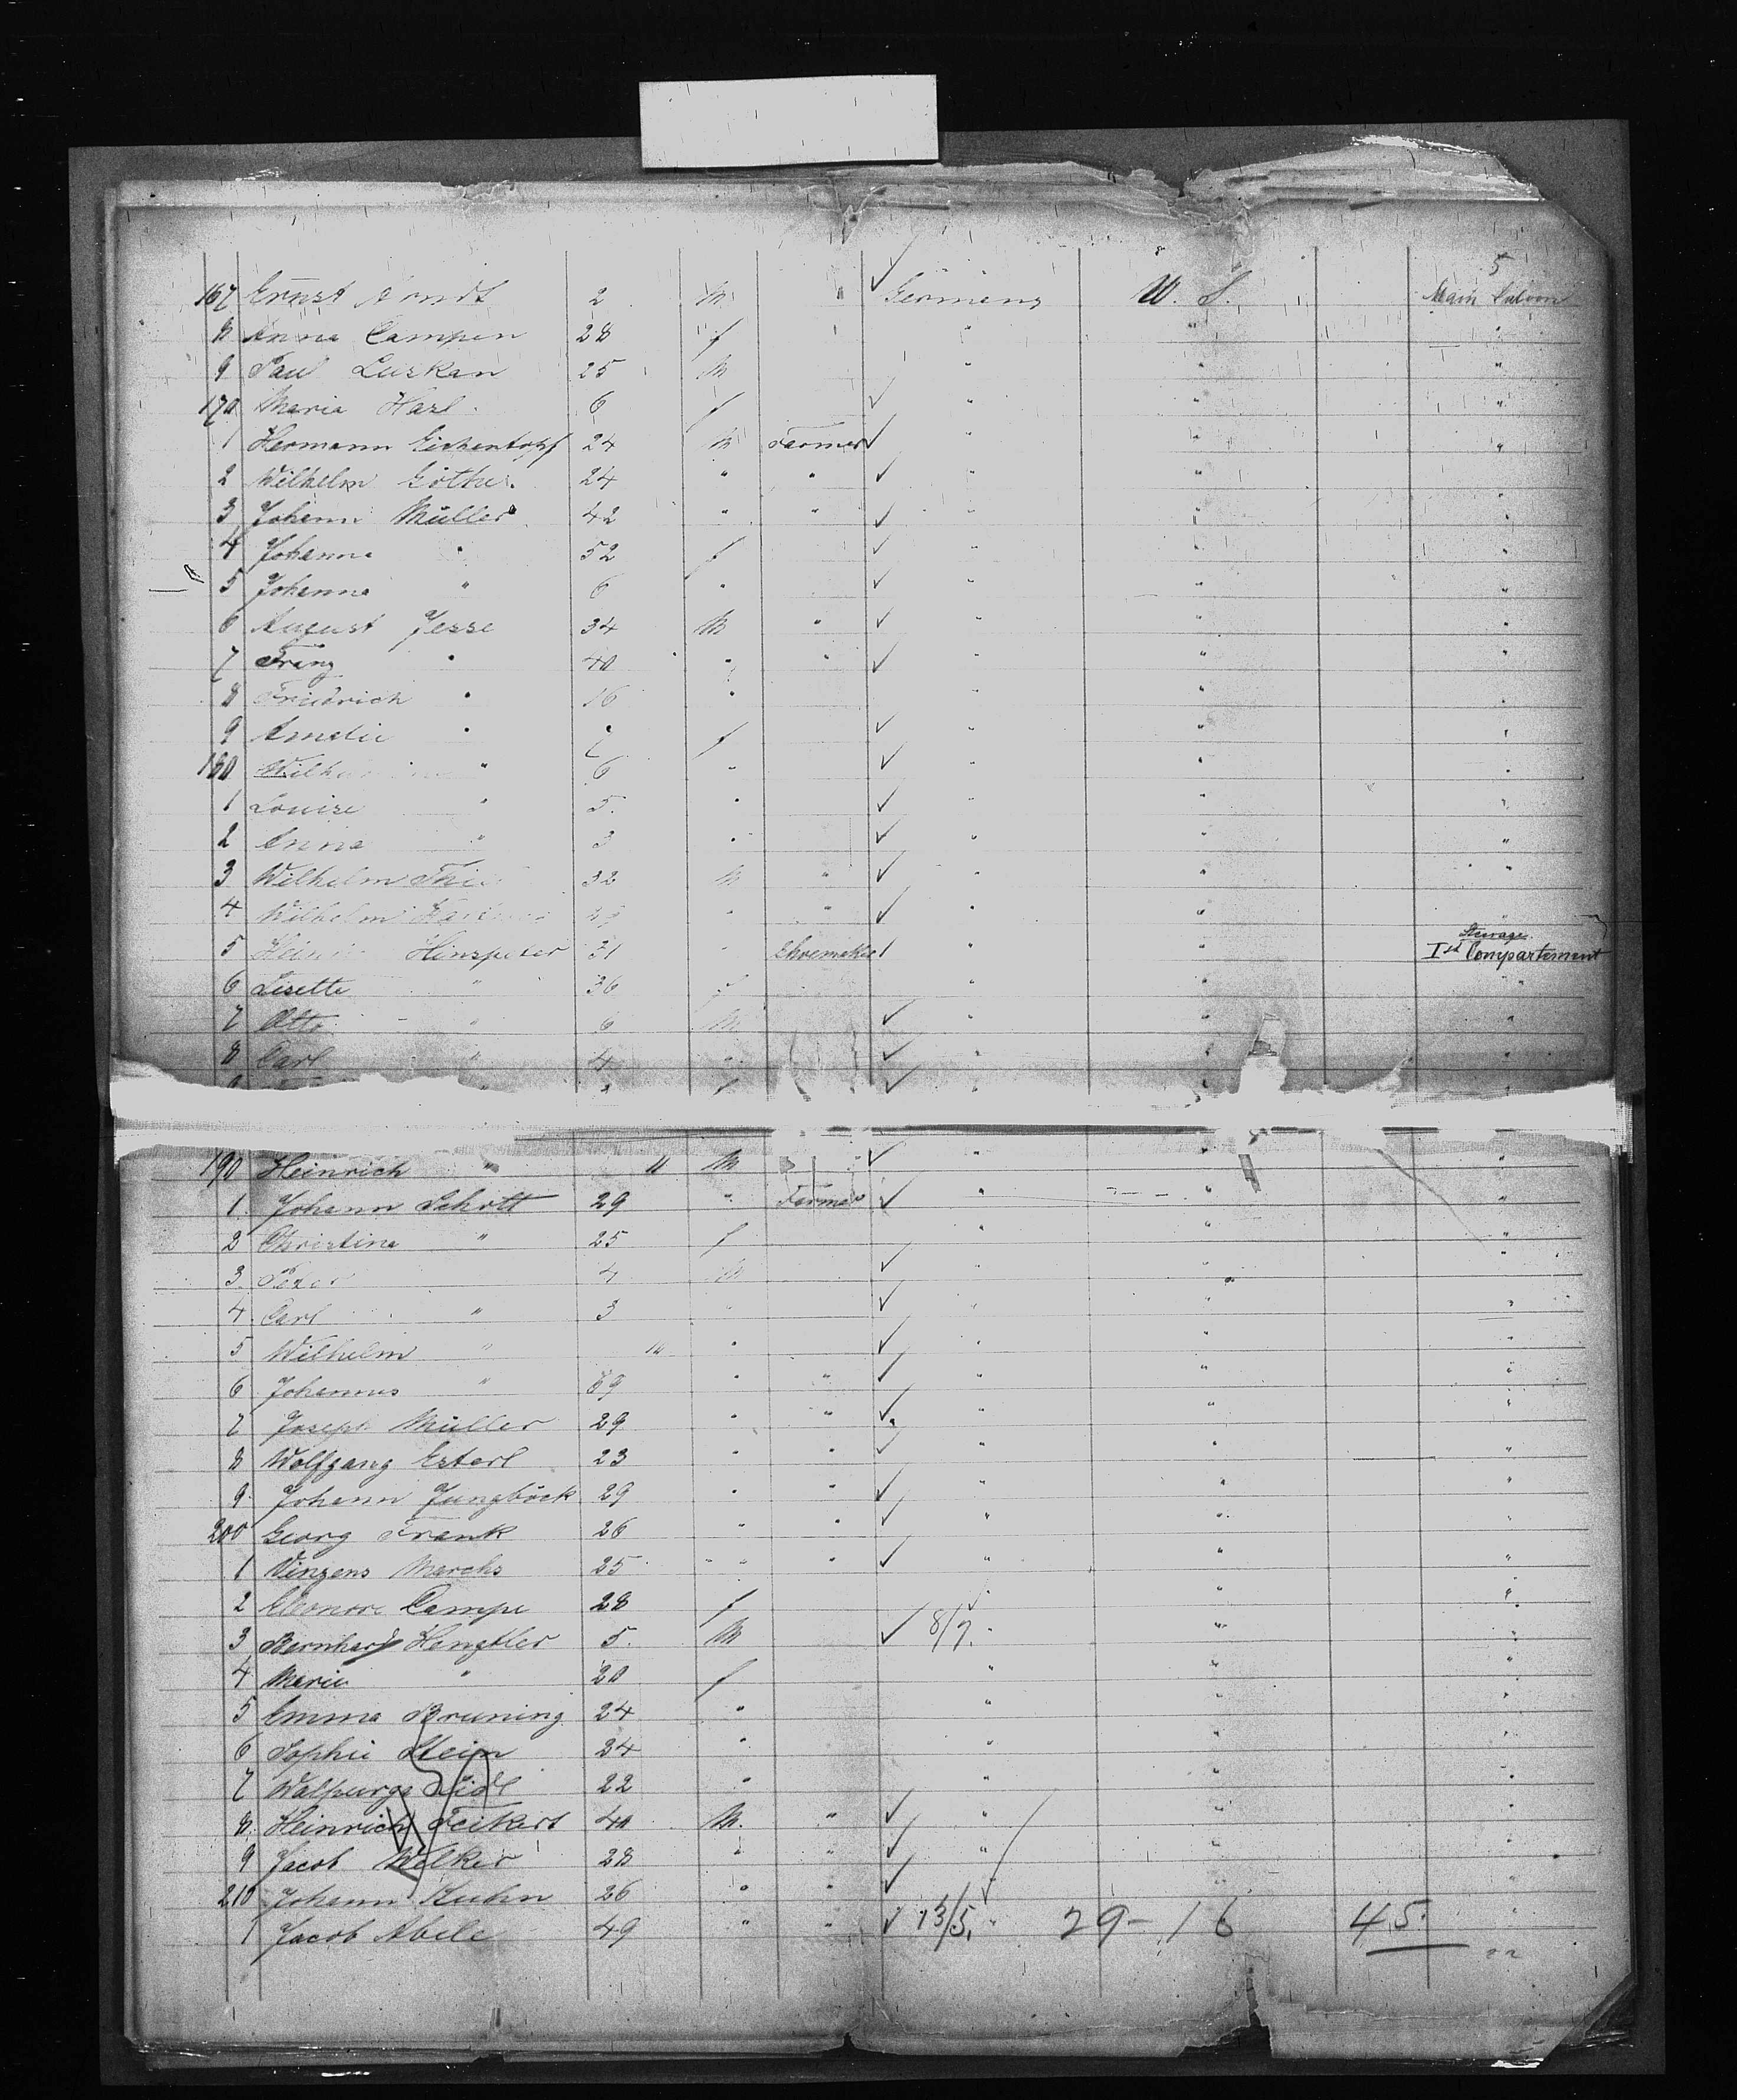 5
167 Ernst Arndt 2 M " Germany U. S. Main Saloon
8 Anna Campen 28 f " " "
9 Paul Luskan 25 M " " "
170 Maria Hasl 6 f " " "
1 Hermann Eichentopf 24 M Farmer " " "
2 Wilhelm Göthe 24 " " " "
3 Johann Müller 42 " " " " "
4 Johanna " 52 f " " "
5 Johanna " 6 " " " "
6 August Jesse 34 M " " " "
7 Franz " 40 " " " "
8 Friedrich " 16 " " " "
9 Amalie " f " "
180 " 6 " " "
1 Louise " 5 " " " "
2 Anna " 3 " " " "
3 Wilhelm 32 M " " " "
4 Wilhelm " " " "
Steerage
5 Hinspeter 31 " Shoemaker " " Ist Compartement
6 Lisette " 36 f " " "
7 Otto " 6 M " " "
8 Carl " 4 " " " "
190 Heinrich " 11 M " " "
1 Johann Schott 29 " Farmer " " "
2 Christine " 25 f " " "
3 Peter 4 M " "
4 Carl " 3 " " " "
5 Wilhelm " 10 " " " "
6 Johannes " 59 " " " " "
7 Joseph Müller 29 " " " " "
8 Wolfgang Esterl 23 " " " " "
9 Johann Jungböck 29 " " " " "
200 Georg Frank 26 " " " " "
1 Vinzens Marchs 25 " " " " "
2 Eleonore Campe 28 f " "
3 Bernhard Hengtler 5 M 8/7. " " "
4 Marie " 20 f " " "
5 Emma Bruning 24 " " " "
6 Sophie Stein 24 " " " "
7 Walpurga 22 " " " "
8 Heinrich Feikert 40 M. " " " "
9 Jacob Welker 28 " " " " "
210 Johann Kuhn 26 " " " "
1 Jacob Abele 49 " " 13/5. " 29-16 45 "